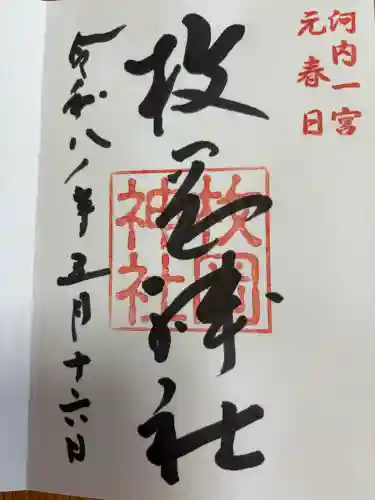 河内一宮
元春日
枚岡神社
枚岡
神社
令和八年五月十六日